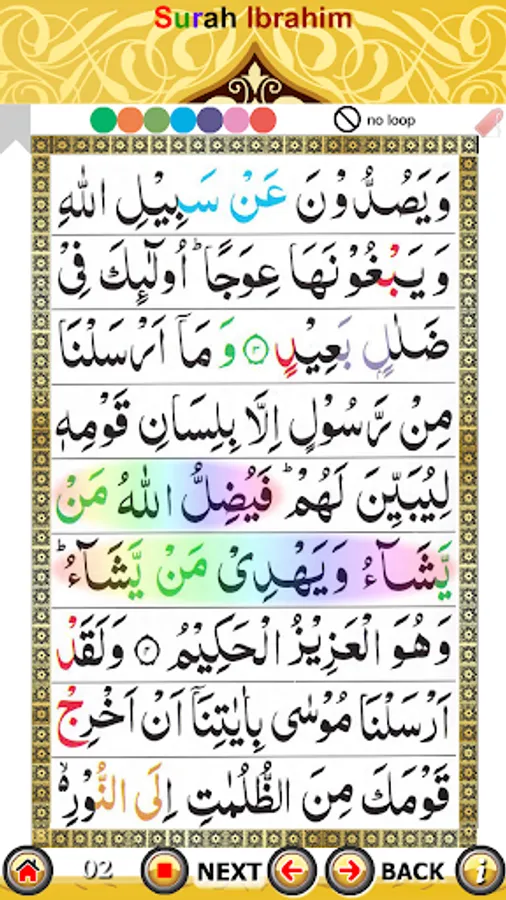 Surah Ibrahim
no loop
وَيَصُدُّوْنَ عَنْ سَبِيْلِ اللّٰهِ
وَيَبْغُوْنَهَا عِوَجًا ؕ اُولٰٓئِكَ فِىْ
ضَلٰلٍۢ بَعِيْدٍ ۝۳ وَ مَاۤ اَرْسَلْنَا
مِنْ رَّسُوْلٍ اِلَّا بِلِسَانِ قَوْمِهٖ
لِيُبَيِّنَ لَهُمْ ؕ فَيُضِلُّ اللّٰهُ مَنْ
يَّشَآءُ وَيَهْدِىْ مَنْ يَّشَآءُ ؕ
وَهُوَ الْعَزِيْزُ الْحَكِيْمُ ۝۴ وَلَقَدْ
اَرْسَلْنَا مُوْسٰى بِاٰيٰتِنَاۤ اَنْ اَخْرِجْ
قَوْمَكَ مِنَ الظُّلُمٰتِ اِلَى النُّوْرِ ۙ
02 NEXT BACK i